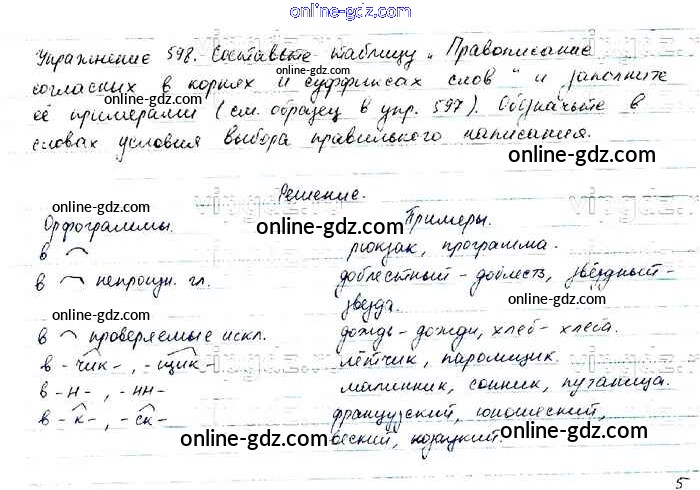 online-gdz.com
Упражнение 598. Составьте таблицу „Правописание
согласных в корнях и суффиксах слов" и заполните
её примерами (см. образец в упр. 597). Обозначьте в
словах условия выбора правильного написания.
online-gdz.com
online-gdz.com
online-gdz.com
Решение.
online-gdz.com
online-gdz.com
Орфограммы. Примеры.
online-gdz.com
в рюкзак, программа.
в непроизн. гл. доблестный - доблесть, звёздный-
звезда.
online-gdz.com
в проверяемые искл. дождь - дожди, хлеб - хлеба.
в -чик-, -щик- лётчик, паромщик.
online-gdz.com
в -н-, -нн- малинник, сонник, путаница.
в -к-, -ск- французский, юношеский,
online-gdz.com
online-gdz.com
веский, козацкий.
online-gdz.com
5